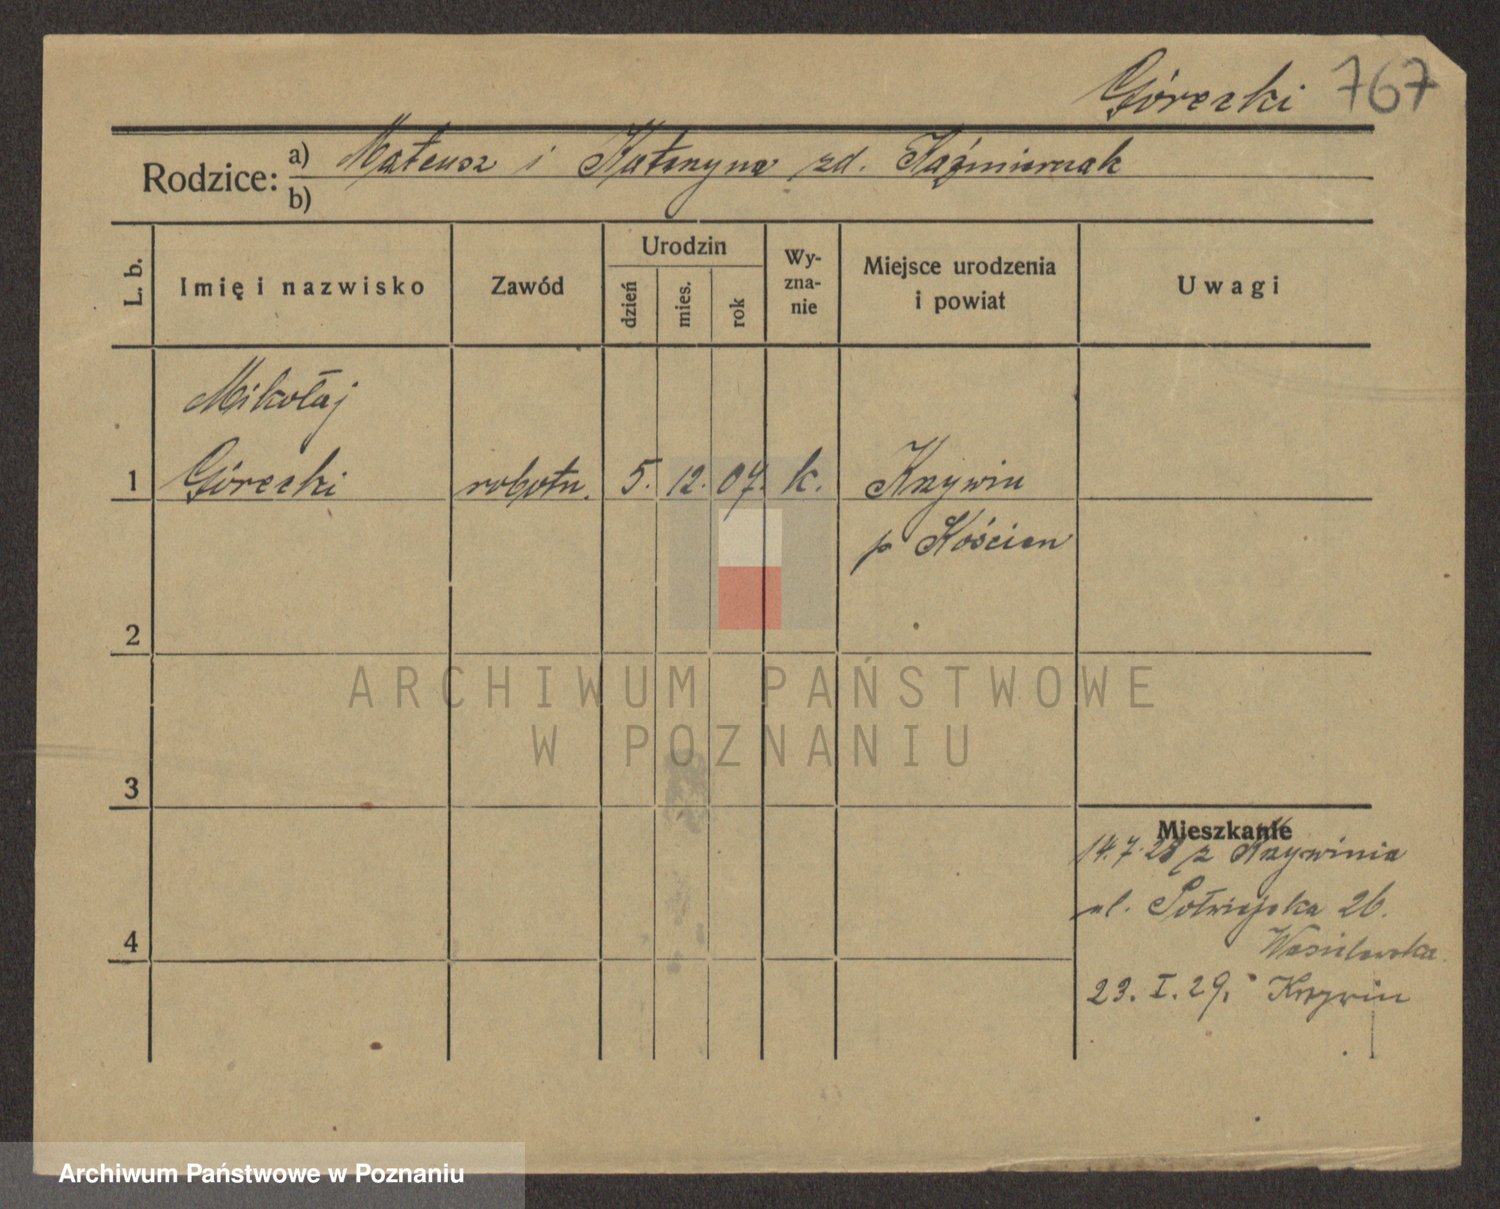 Górecki 767
Rodzice: a) Mateusz i Katarzyna zd. Kaźmierczak
b)
L. b.
Imię i nazwisko
Zawód
Urodzin
dzień
mies.
rok
Wy-
zna-
nie
Miejsce urodzenia
i powiat
Uwagi
Mikołaj
1 Górecki robotn. 5. 12. 07. k. Krzywiń
p Kościan
2
ARCHIWUM PAŃSTWOWE
W POZNANIU
3
Mieszkanie
14.7.28 z Krzywinia
ul. Półwiejska 26.
4
Wasilewska
23. I. 29. Krzywiń
Archiwum Państwowe w Poznaniu